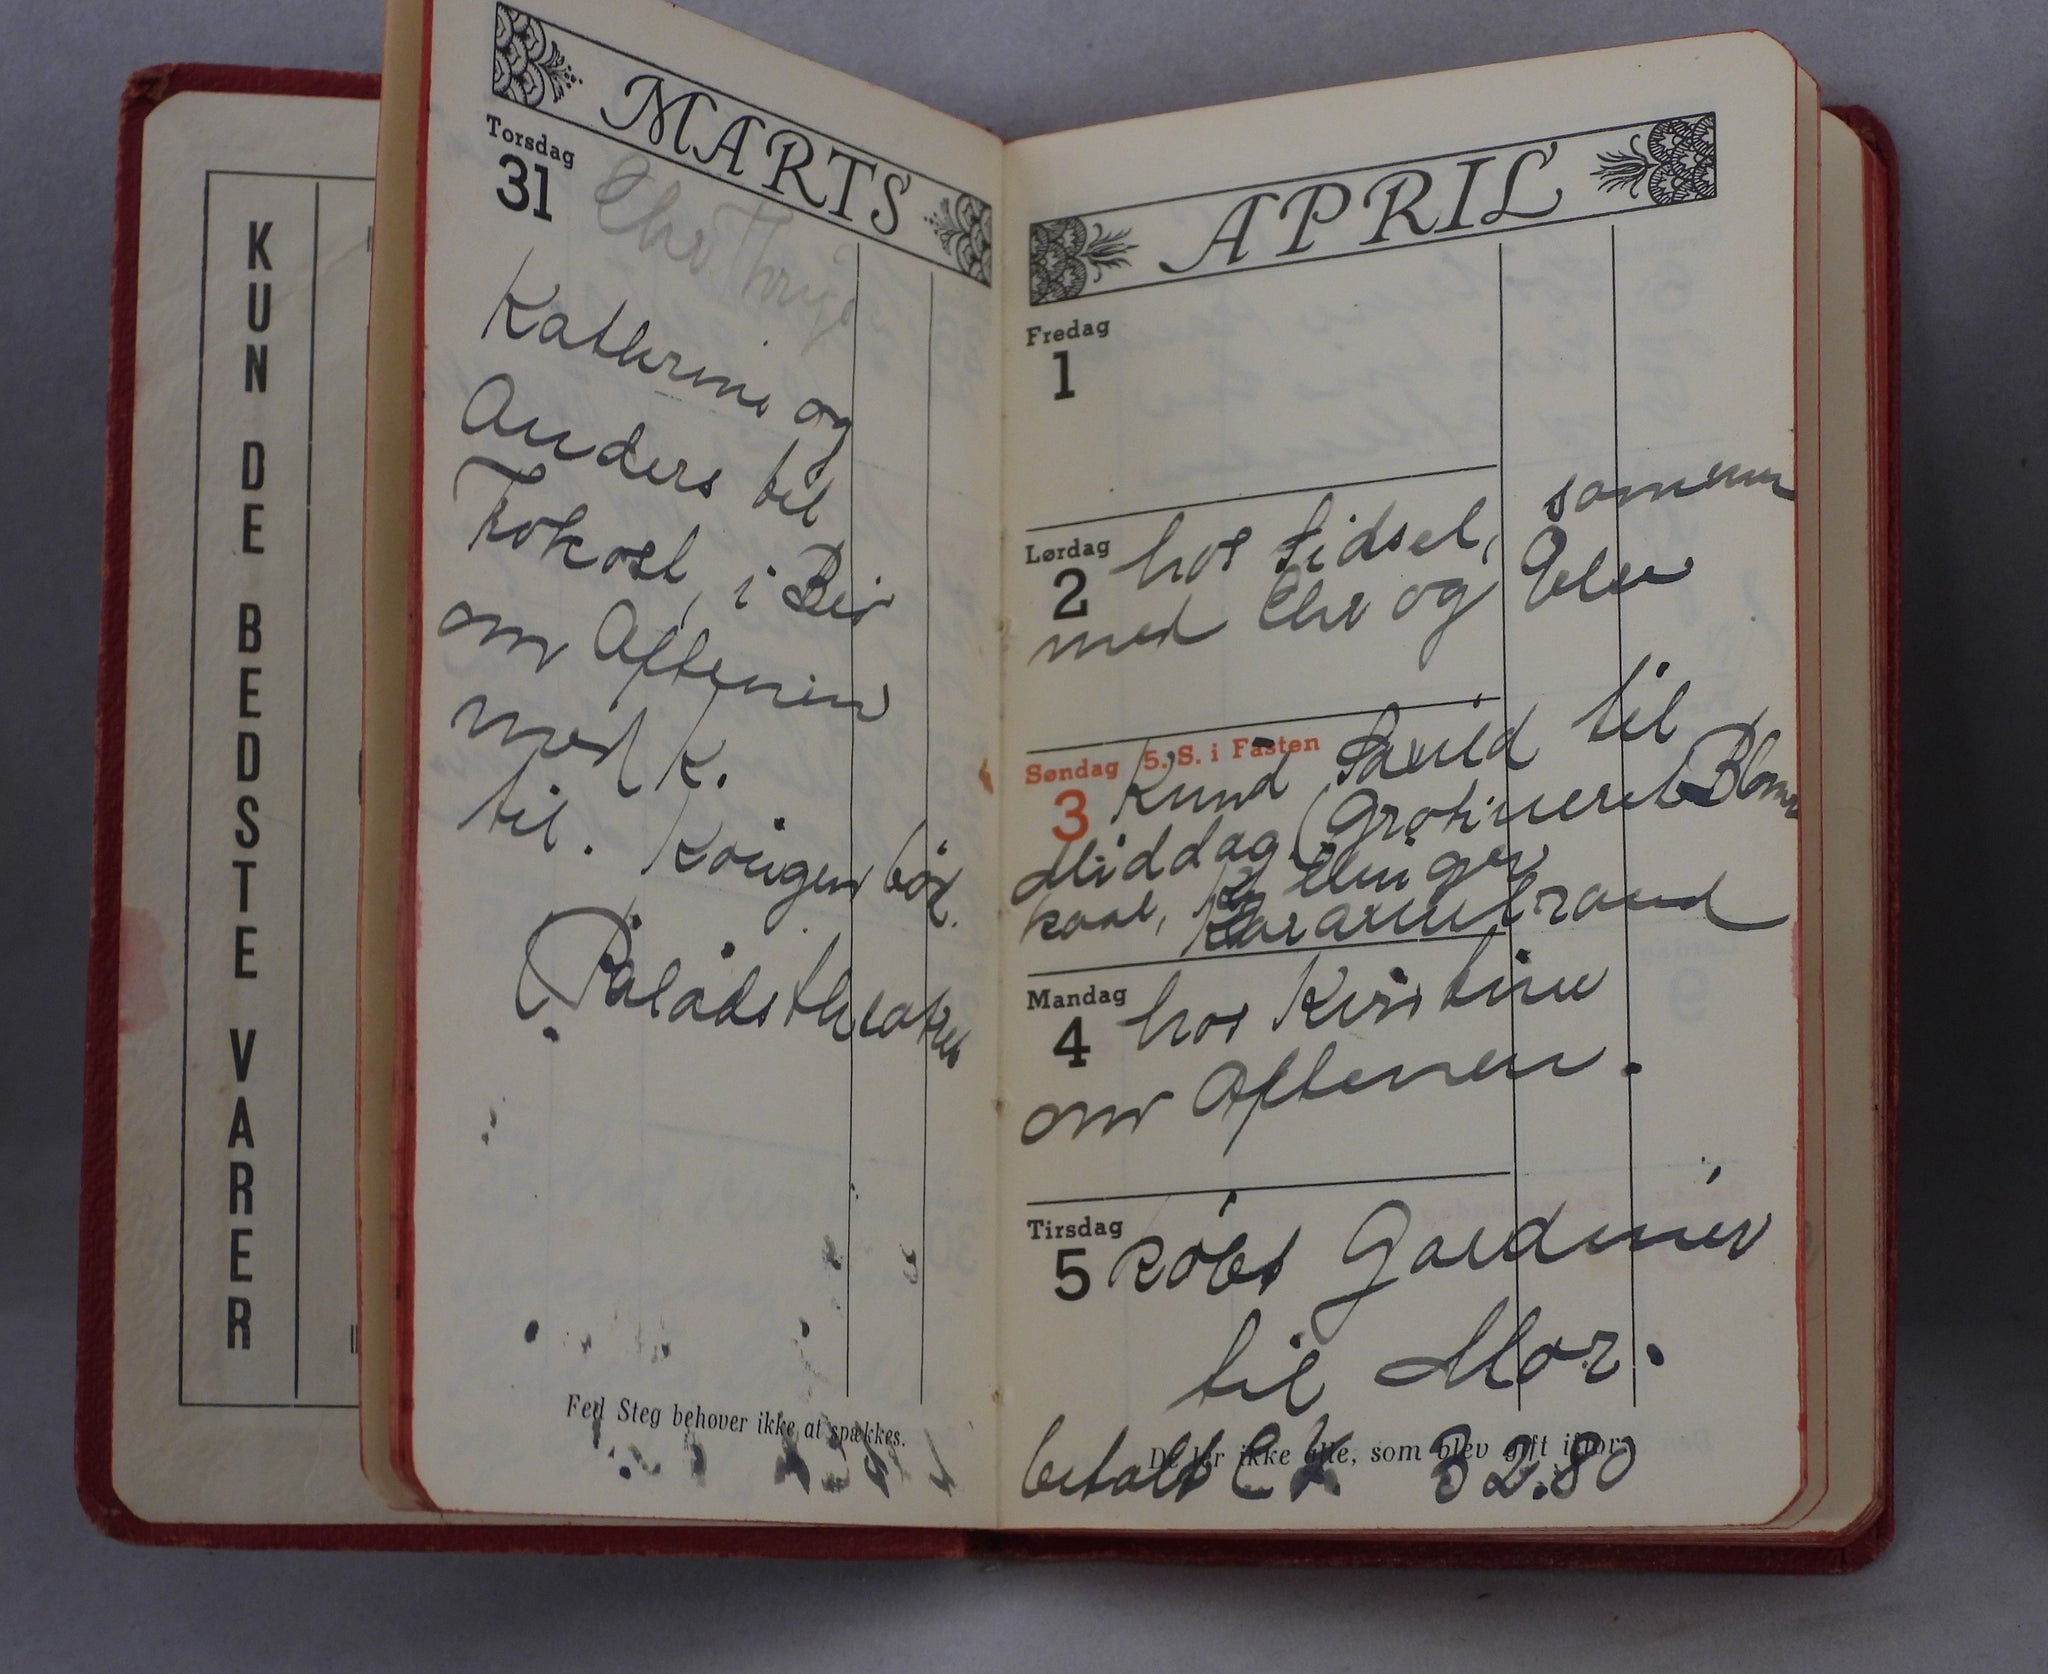 KUN DE BEDSTE VARER
MARTS
Torsdag
31
Chr Thryd
Kathrine og
Anders til
Frokost, i Bio
om Aftenen
med K.
til. Kongen bød.
(Paladstheatret
Fed Steg behøver ikke at spækkes.
APRIL
Fredag
1
Lørdag
2
hos Sidsel, sammen
med Chr og Elen
Søndag 5. S. i Fasten
3
Knud Savild til
Middag (Gratineret Blom
kaal, Kyllinger
Karamelrand
Mandag
4
hos Kirstine
om Aftenen.
Tirsdag
5
købt Gardiner
til Mor.
De ler ikke alle, som blev gift ifjor.
betalt C K 32.80